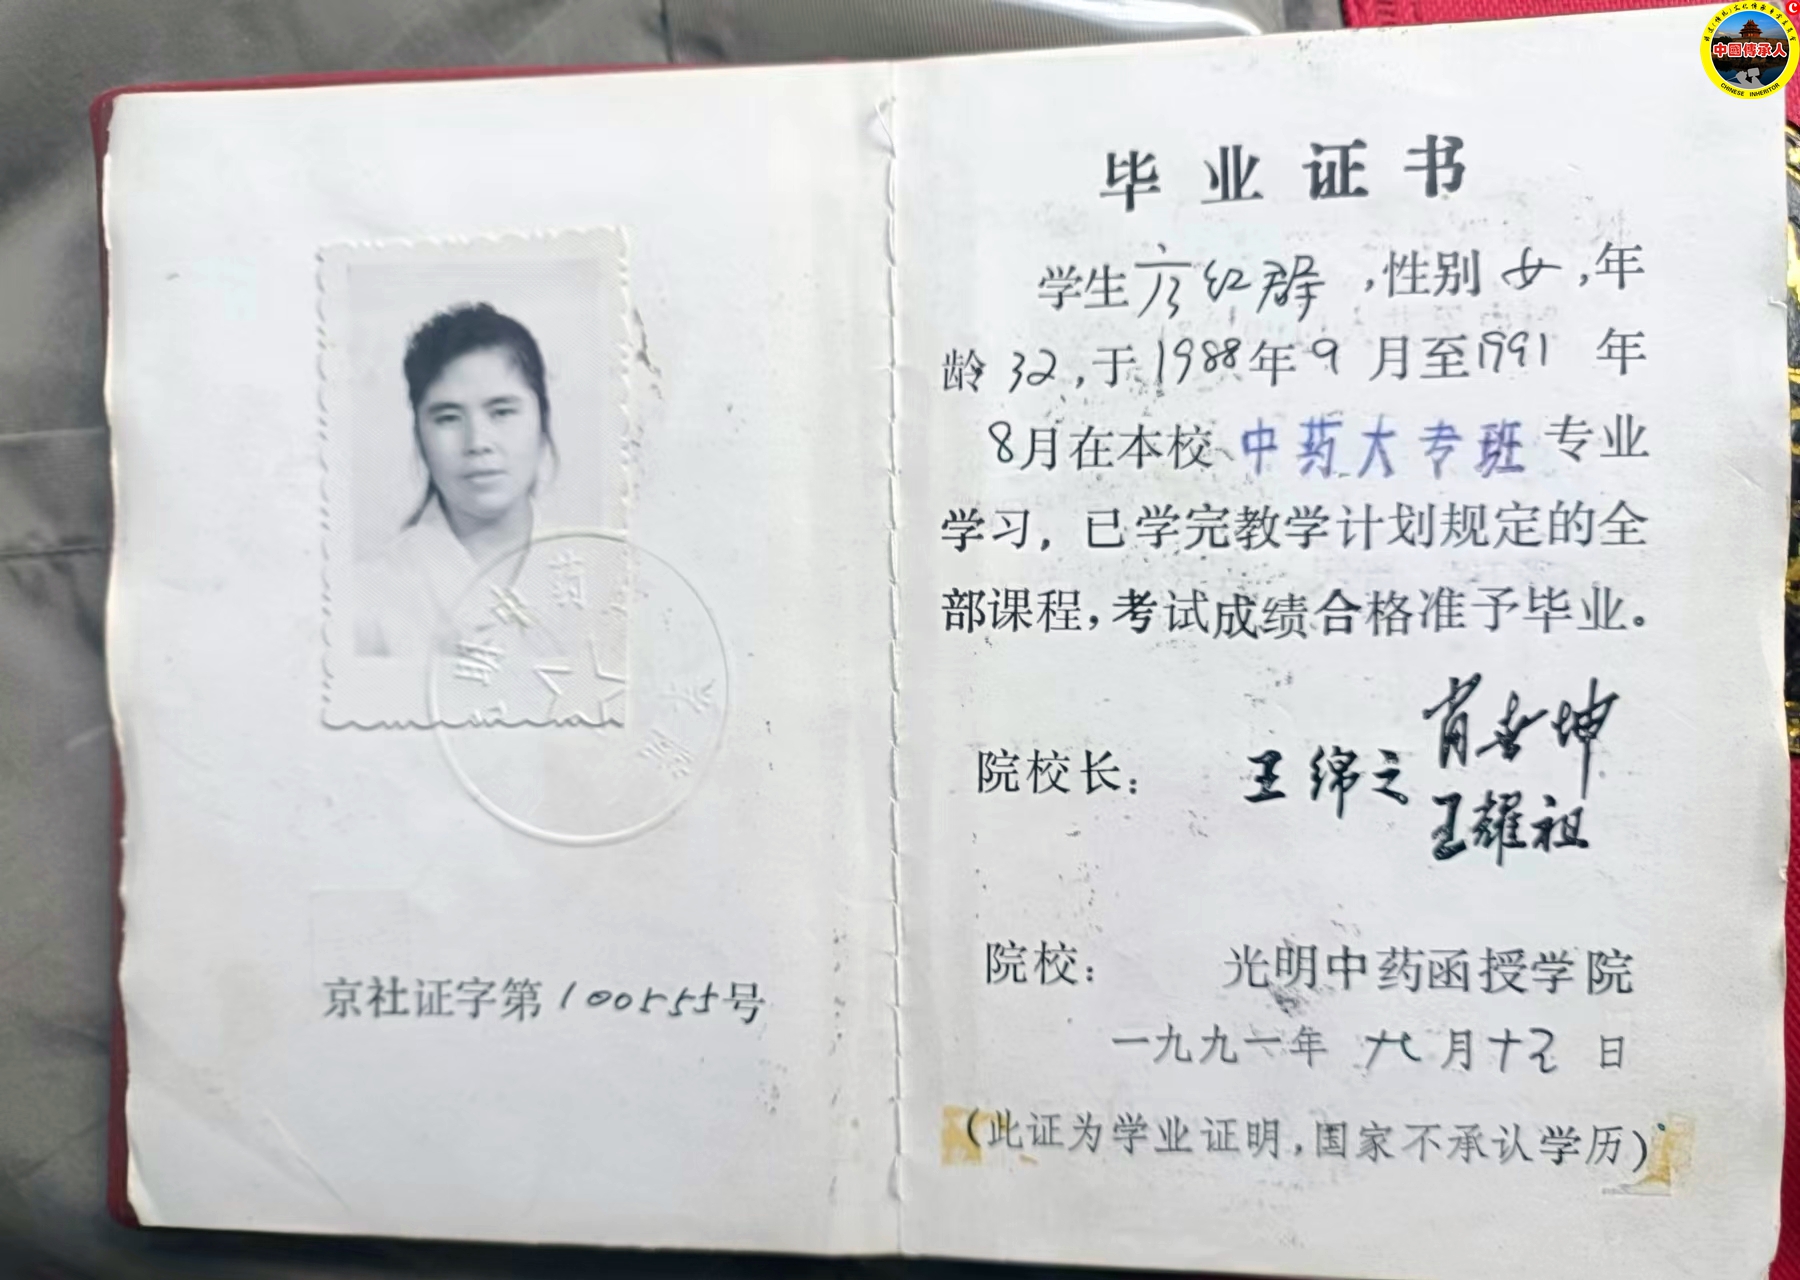 京社证字第100555号
毕业证书
学生 红群，性别女，年
龄32，于1988年9月至1991年
8月在本校中药大专班专业
学习，已学完教学计划规定的全
部课程，考试成绩合格准予毕业。
院校长： 王绵之 肖 坤
王耀祖
院校： 光明中药函授学院
一九九一年 月十五日
（此证为学业证明，国家不承认学历）
中國傳承人
CHINESE INHERITOR